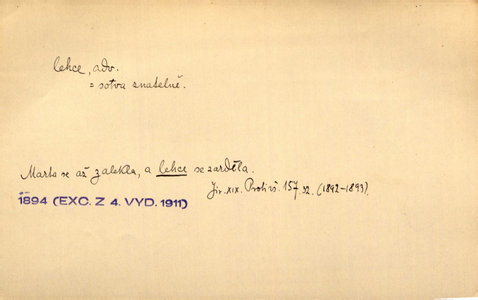 lehce, adv.
= sotva znatelně.
Marta se až zalekla, a lehce se zarděla.
Jir. XIX. Proti vš. 157. 32. (1892-1893).
1894 (EXC. Z 4. VYD. 1911)